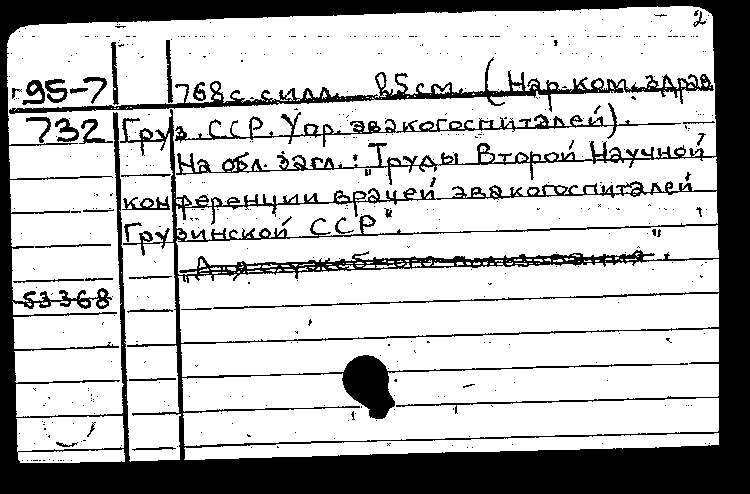 2
95-7 768 с. с илл. 25 см. (Нар. ком. здрав
732 Груз. ССР. Упр. эвакогоспиталей).
На обл. загл.: „Труды Второй Научной
конференции врачей эвакогоспиталей
Грузинской ССР".
„Для служебного пользования".
53368